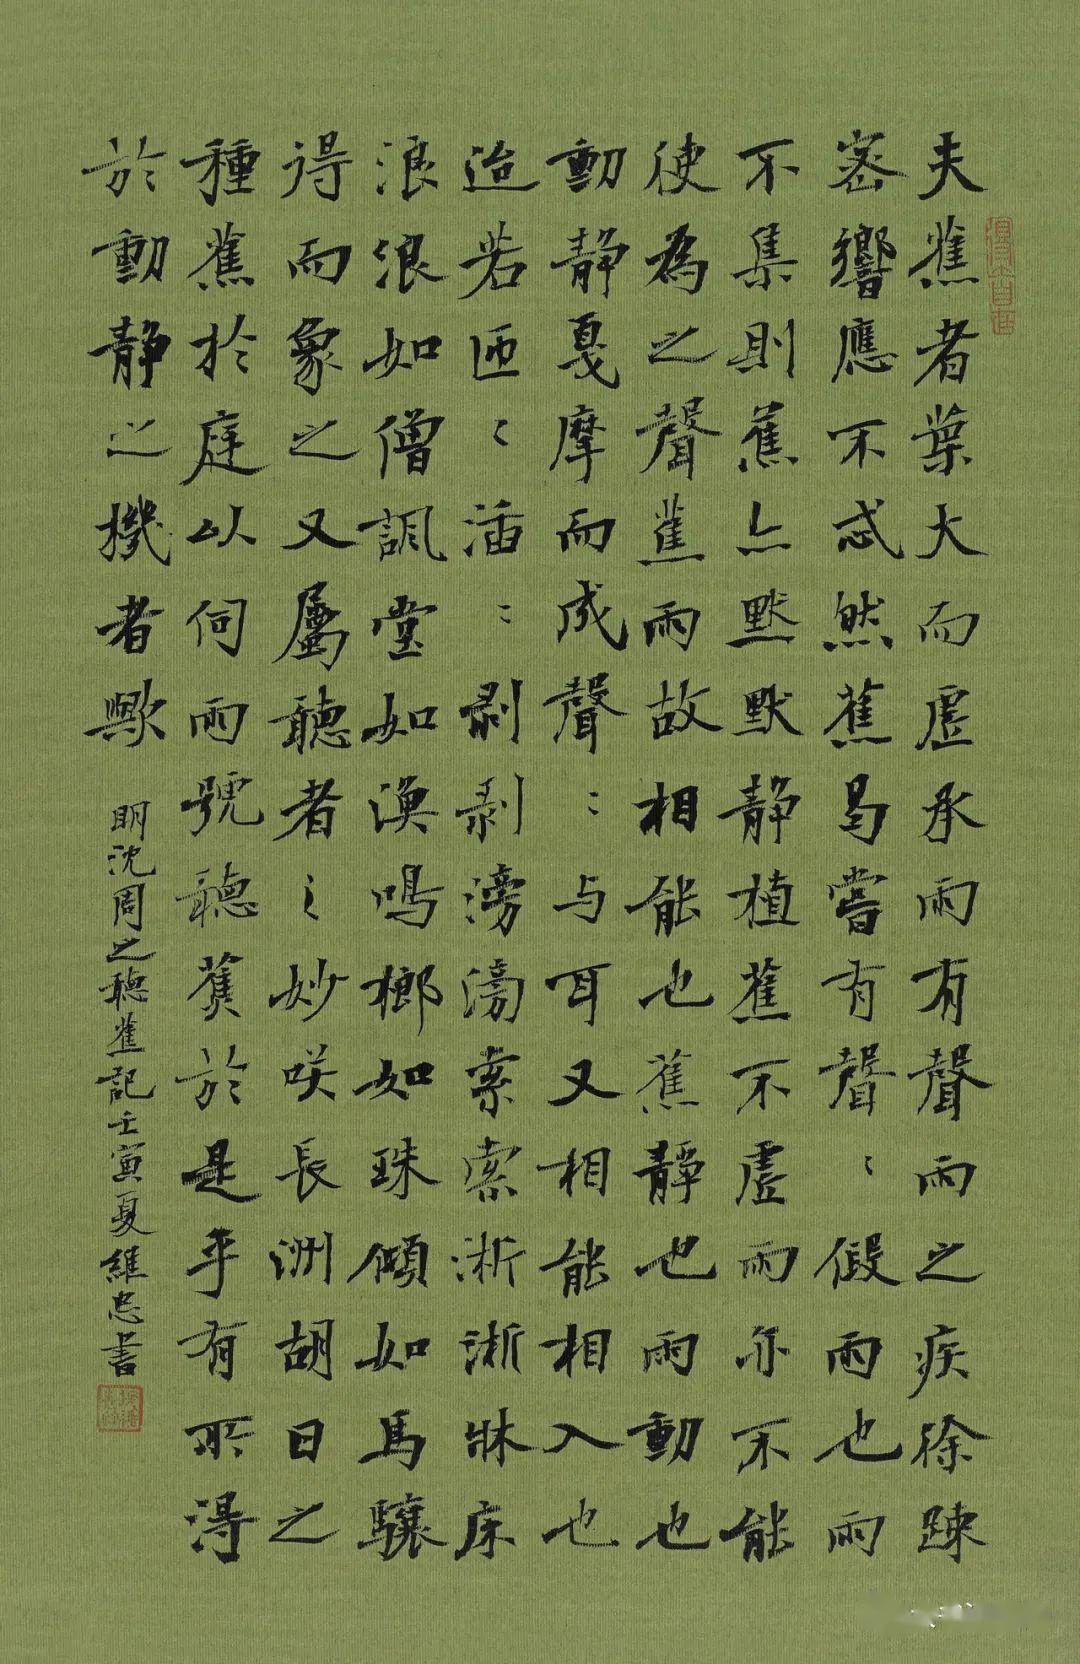 夫蕉者葉大而虛承雨有聲雨之疾徐踈
密響應不忒然蕉曷嘗有聲〻假雨也雨
不集則蕉亦默默静植蕉不虛雨亦不能
使為之聲蕉雨故相能也蕉静也雨動也
動静戛摩而成聲〻与耳又相能相入也
迨若匝〻插〻剥剥滂滂索索淅淅牀床
浪浪如僧諷堂如漁鳴榔如珠傾如馬驤
得而象之又屬聽者〻妙咲長洲胡日之
種蕉於庭以伺雨號聽蕉於是乎有所得
於動静之機者歟
明沈周之聽蕉記壬寅夏維忠書